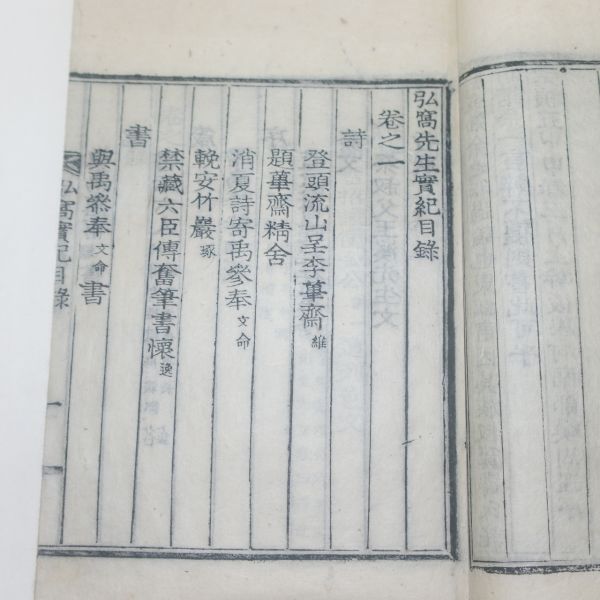 弘窩先生實紀目錄
卷之一
詩
登頭流山呈李篳齋維
題篳齋精舍
消夏詩寄禹參奉文命
輓安竹巖琢
禁藏六臣傳奮筆書懷逸
書
與禹參奉文命書
弘窩實紀目錄
一